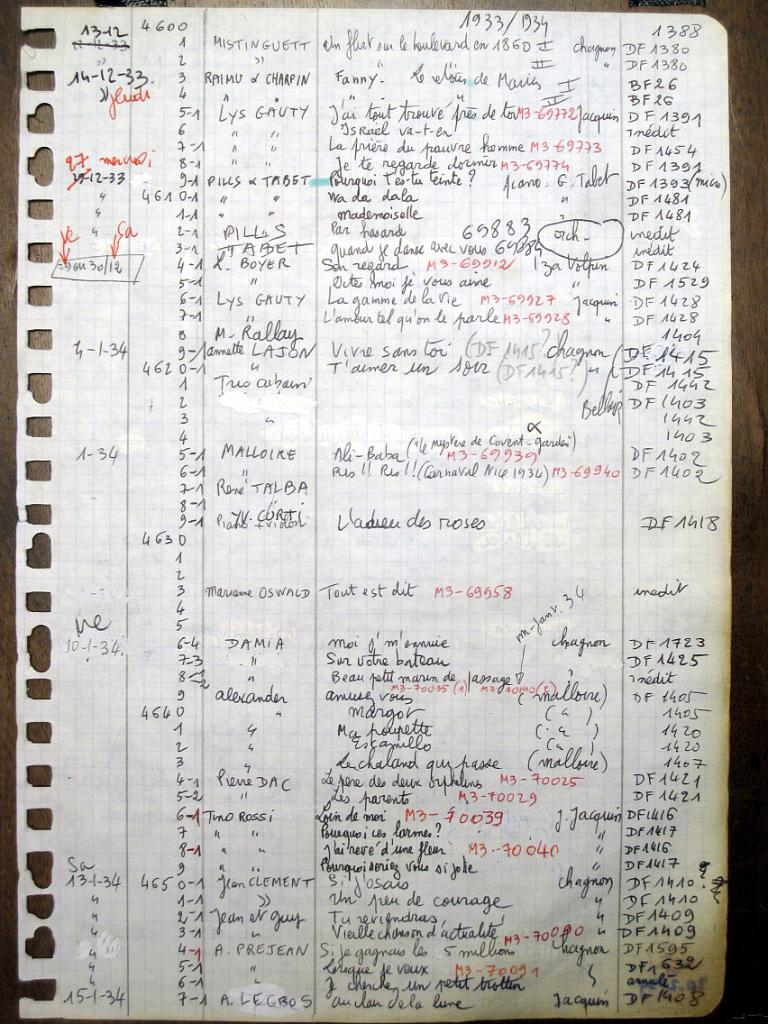 1933/1934
13-12 4600 1388
12-12-33 1 MISTINGUETT Un flirt sur le boulevard en 1860 I chagnon DF 1380
" 2 " II " DF 1380
14-12-33. 3 RAIMU & CHARPIN Fanny - Le retour de Marius I BF 26
" jeudi 4 " " " " II BF 26
5-1 LYS GAUTY J'ai tout trouvé près de toi M3-69772 Jacquin DF 1391
6 " " Israël va-t-en inédit
7-1 " " La prière du pauvre homme M3-69773 DF 1454
27 mercredi 8-1 " " Je te regarde dormir M3-69774 DF 1391
-12-33 9-1 PILLS & TABET Pourquoi t'es-tu teinte? piano. G. Tabet DF 1393 (micro)
" 4610-1 " " Wa da dala " DF 1481
" 1-1 " " Mademoiselle DF 1481
" 2-1 PILLS Par hasard 69883 orch- inedit
Ve Sa 3-1 TABET quand je danse avec vous 69884 inédit
29 ou 30/12 4-1 L. BOYER Son regard M3-69912 Iza Volpin DF 1424
5-1 " Dites moi je vous aime " DF 1529
6-1 LYS GAUTY La gamme de la vie M3-69927 Jacquin DF 1428
7-1 " L'amour tel qu'on le parle M3-69928 " DF 1428
8 M. Rallay 1404
4-1-34 9-1 annette LAJON Vivre sans toi (DF 1415? chagnon (DF 1415
4620-1 " T'aimer un soir (DF 1415?) " (DF 1415
1 Trio cubain DF 1442
2 DF 1403
3 " 1442
4 1403
1-34 5-1 MALLOIRE Ali-Baba ("le mystère de Covent-garden") M3-69939 DF 1402
6-1 " Ris!! Ris!! (Carnaval Nice 1934) M3-69940 DF 1402
7-1 René TALBA
8-1 "
9-1 Piano + violon L'adieu des roses DF 1418
4630
1
2
3 Marianne OSWALD Tout est dit M3-69958 inedit
4
Ve 5
m-Janv. 34
10-1-34. 6-4 DAMIA moi j'm'ennuie chagnon DF 1723
7-3 " Sur votre bateau DF 1425
8 " Beau petit marin de passage " inédit
9 alexander amusez vous M3-70035 (1) (malloire) DF 1405
4640 " margot (" ) 1405
1 " Ma poupette (" ) 1420
2 " Escamillo (" ) 1420
3 Le chaland qui passe (malloire) 1407
4-1 Pierre DAC Le père des deux orphelines M3-70025 DF 1421
5-2 " Les parents M3-70029 DF 1421
6-1 Tino ROSSI Loin de moi M3-70039 J. Jacquin DF 1416
7 " " Pourquoi ces larmes? " DF 1417
8-1 " " J'ai rêvé d'une fleur M3-70040 " DF 1416
Sa 9 " " Pourquoi seriez vous si jolie " DF 1417
13-1-34 4650-1 Jean CLEMENT Si j'osais chagnon DF 1410 ?
" 1-1 " Un peu de courage " DF 1410
" 2-1 Jean et guy Tu reviendras " DF 1409
" 3-1 " Vieille chanson d'actualité " DF 1409
" 4-1 A. PREJEAN Si je gagnais les 5 millions M3-70090 chagnon DF 1595
" 5-1 " Lorsque je veux M3-70091 DF 1632
" 6-1 " Je cherche un petit trottin annulé
15-1-34 7-1 A. LEGROS au clair de la lune Jacquin DF 1408